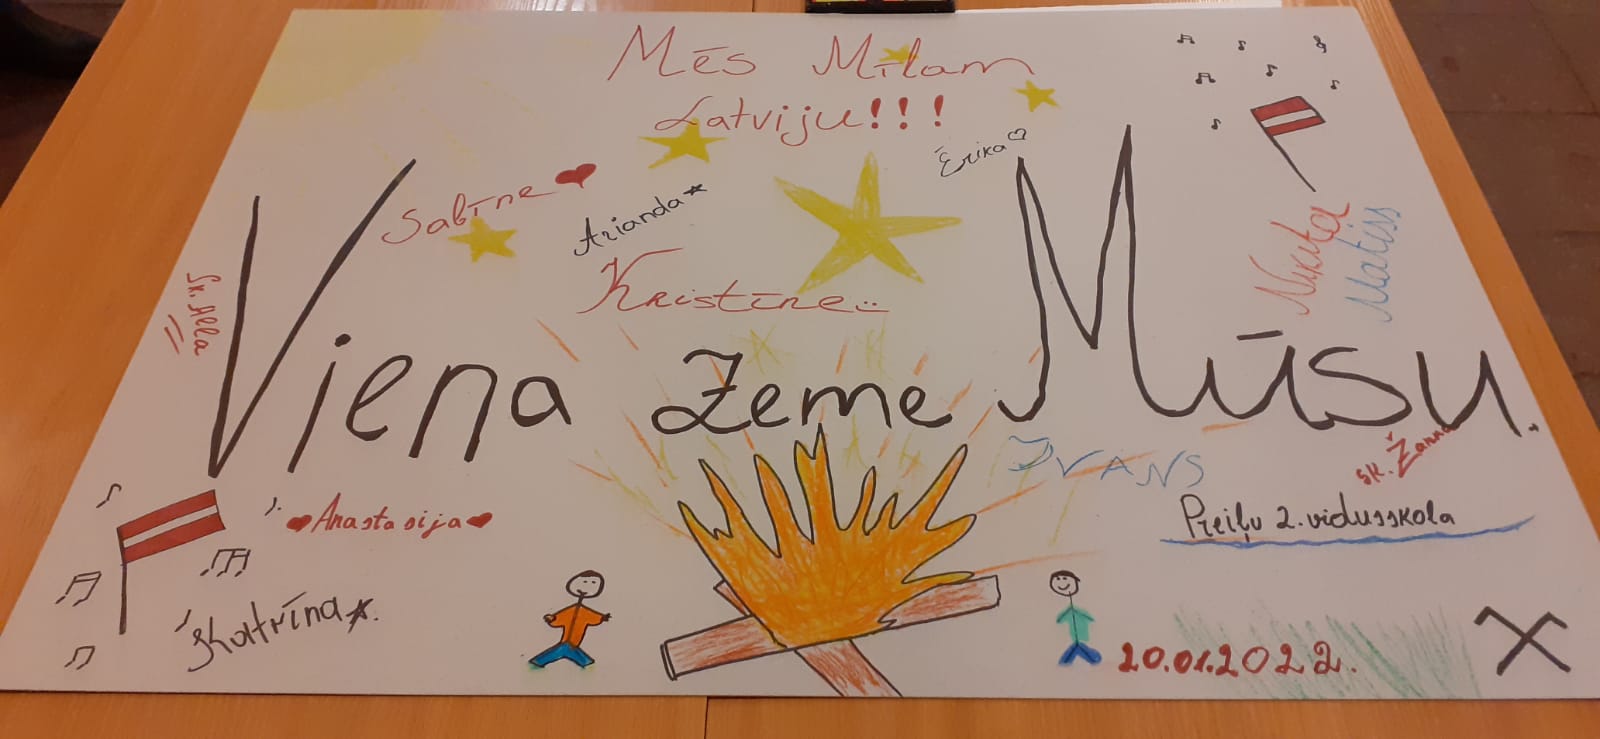 Mēs Mīlam
Latviju!!!
Sabīne
Arianda
Ērika
Kristīne
Nikita
Matīss
Sk. Alla
Viena Zeme Mūsu.
IVANS
sk. Žanna
Anastasija
Preiļu 2. vidusskola
Katrīna
20.01.2022.